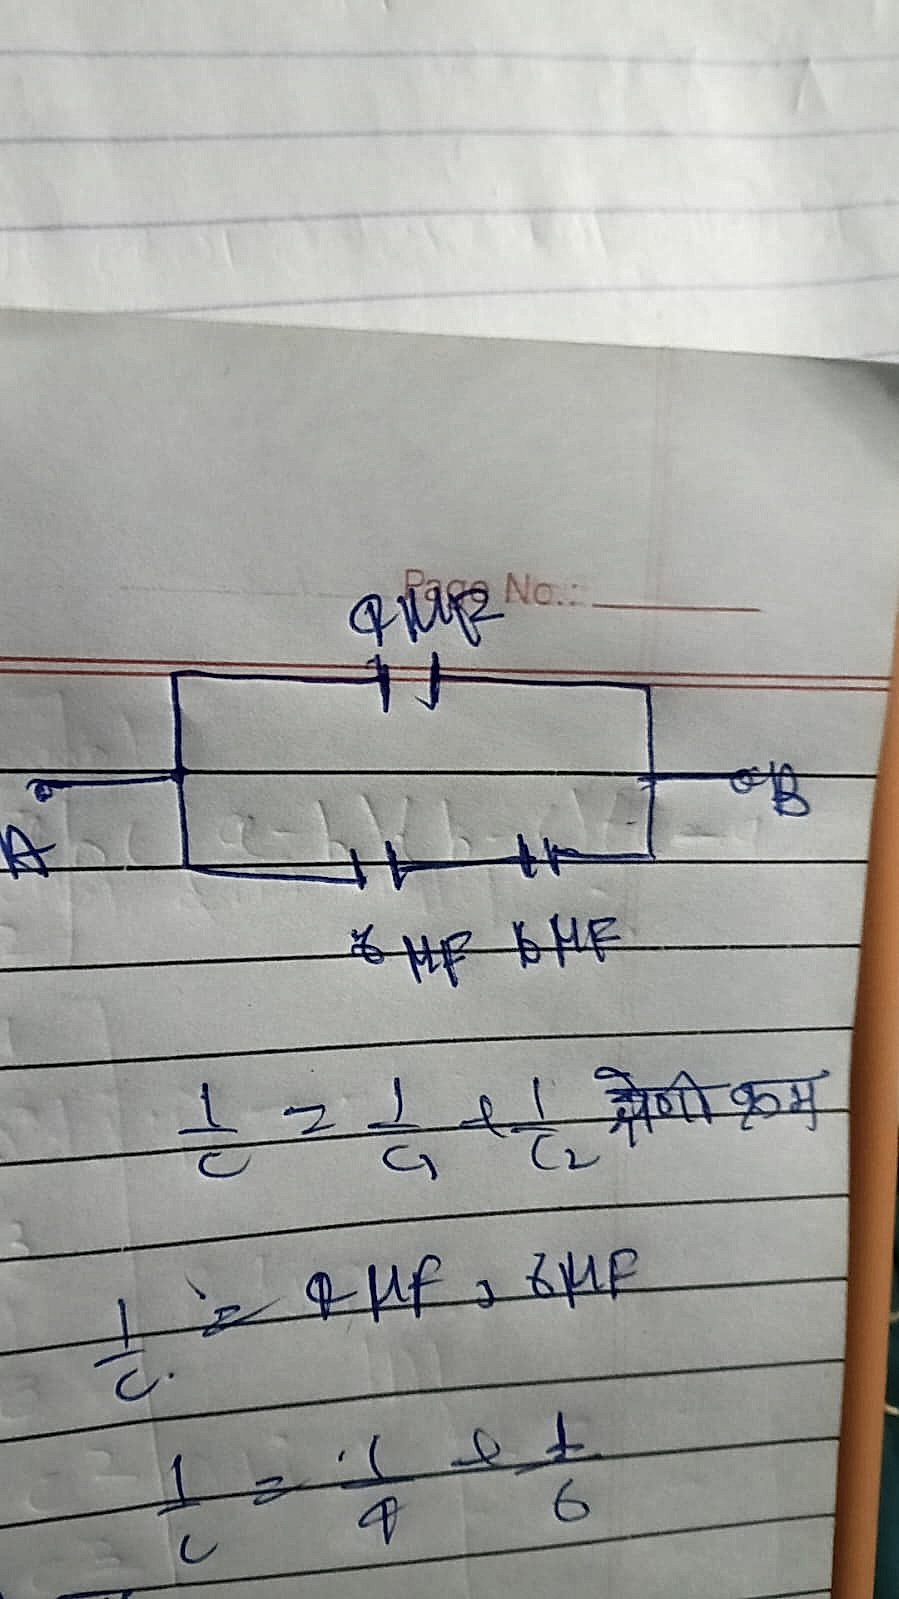 Page No.:
4 μF
A
B
6 μF 6 μF
1/C = 1/C1 + 1/C2 श्रेणी क्रम
1/C = 4 μF, 6 μF
1/C = 1/4 + 1/6